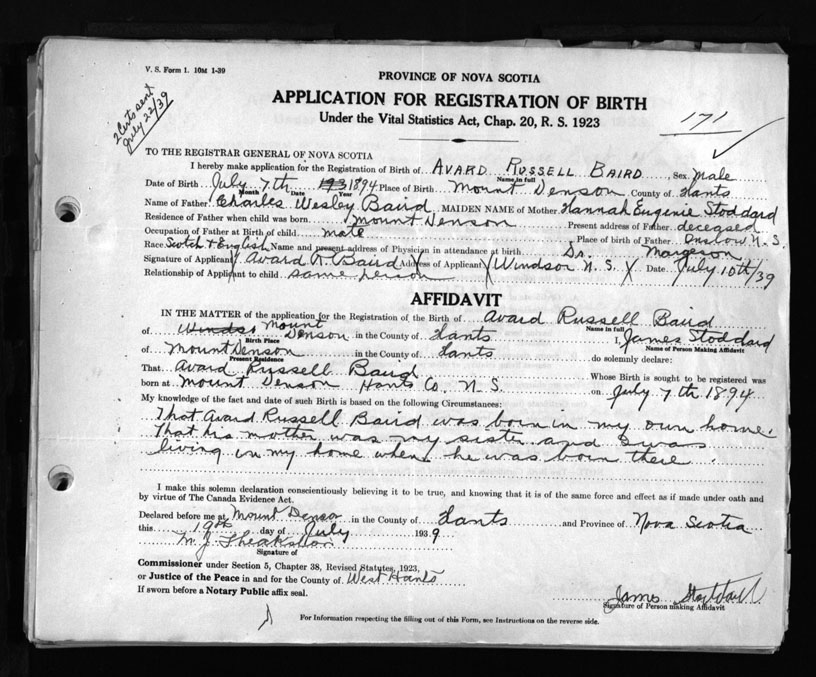 V. S. Form 1. 10M 1-39
2 Certs sent
July 22/39
PROVINCE OF NOVA SCOTIA
APPLICATION FOR REGISTRATION OF BIRTH
Under the Vital Statistics Act, Chap. 20, R. S. 1923
171
TO THE REGISTRAR GENERAL OF NOVA SCOTIA
I hereby make application for the Registration of Birth of AVARD RUSSELL BAIRD Sex Male
Name in full
Date of Birth July 7th 193 1894 Place of Birth Mount Denson County of Hants
Month Date Year
Name of Father Charles Wesley Baird MAIDEN NAME of Mother Hannah Eugenie Stoddard
Residence of Father when child was born Mount Denson Present address of Father deceased
Occupation of Father at Birth of child mate Place of birth of Father Onslow N.S.
Race Scotch & English Name and present address of Physician in attendance at birth Dr. Margeson
Signature of Applicant Avard R. Baird Address of Applicant Windsor N.S. Date July 10th/39
Relationship of Applicant to child same person
AFFIDAVIT
IN THE MATTER of the application for the Registration of the Birth of Avard Russell Baird
Name in full
of Windso Mount Denson in the County of Hants I, James Stoddard
Birth Place Name of Person Making Affidavit
of Mount Denson in the County of Hants do solemnly declare:
Present Residence
That Avard Russell Baird Whose Birth is sought to be registered was
born at Mount Denson Hants Co. N.S. on July 7th 1894
My knowledge of the fact and date of such Birth is based on the following Circumstances:
That Avard Russell Baird was born in my own home.
That his mother was my sister and I was
living in my home when he was born there.
I make this solemn declaration conscientiously believing it to be true, and knowing that it is of the same force and effect as if made under oath and
by virtue of The Canada Evidence Act.
Declared before me at Mount Denson in the County of Hants and Province of Nova Scotia
this 19th day of July 1939
M. J.
Signature of
Commissioner under Section 5, Chapter 38, Revised Statutes, 1923,
or Justice of the Peace in and for the County of West Hants
If sworn before a Notary Public affix seal.
James Stoddard
Signature of Person making Affidavit
For Information respecting the filling out of this Form, see Instructions on the reverse side.